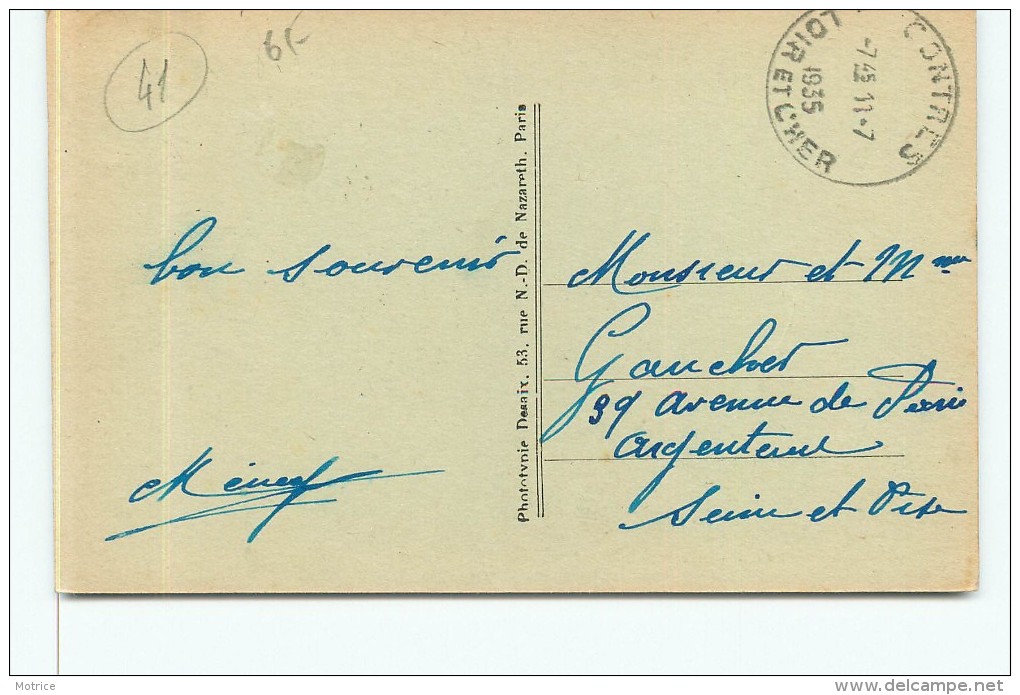 41
6F
CONTRES
-7 45 11-7
1935
LOIR ET CHER
bon souvenir
Phototypie Desaix, 53, rue N.-D. de Nazareth. Paris
Monsieur et Mme
Gaucher
39 avenue de Paris
Argenteuil
Seine et Oise
Motrice
www.delcampe.net